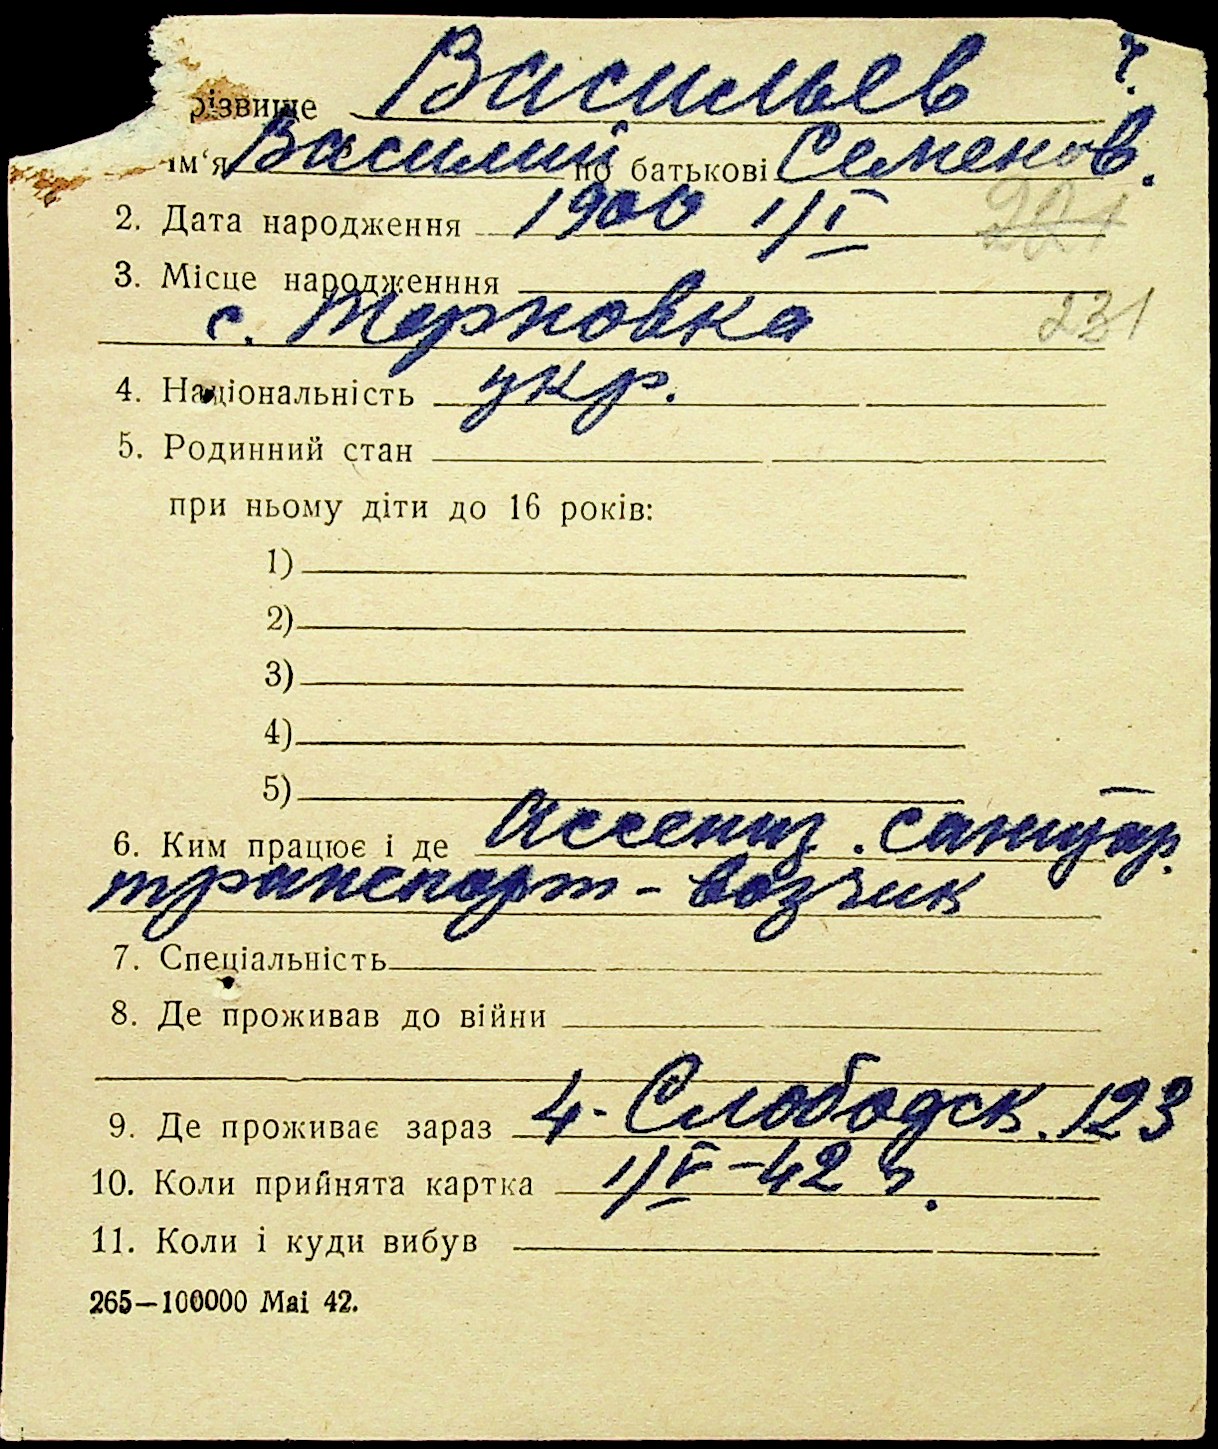 різвище Васильев ч.
ім‘я Василий по батькові Семенов.
2. Дата народження 1900 1/I 201
3. Місце народженння
с. Терновка 231
4. Національність укр.
5. Родинний стан
при ньому діти до 16 років:
1)
2)
3)
4)
5)
6. Ким працює і де Ассениз. санитар.
транспорт - возчик
7. Спеціальність
8. Де проживав до війни
9. Де проживає зараз 4 - Слободск. 123
10. Коли прийнята картка 1/V - 42 г.
11. Коли і куди вибув
265—100000 Mai 42.